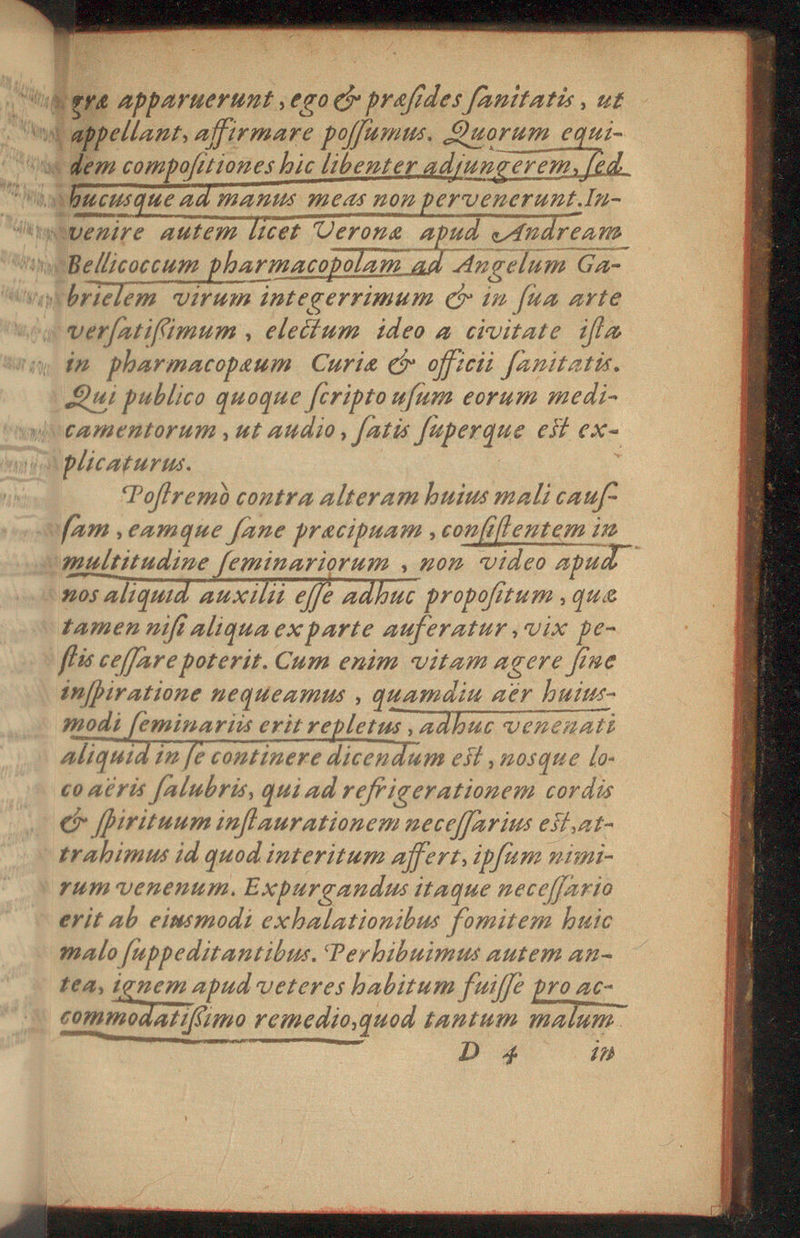 gra apparuerunt, ego & præsides sanitatis, ut
appellant, affirmare possumus. Quorum equi-
dem compositiones hic libenter adjungerem, sed
hucusque ad manus meas non pervenerunt. In-
venire autem licet Veronæ apud Andream
Bellicoccum pharmacopolam ad Angelum Ga-
brielem virum integerrimum & in sua arte
versatissimum, electum ideo a civitate ista
in pharmacopæum Curiæ & officii sanitatis.
Qui publico quoque scripto usum eorum medi-
camentorum, ut audio, satis superque est ex-
plicaturus.
Postremò contra alteram huius mali caus-
sam, eamque sane præcipuam, consistentem in
multitudine seminariorum, non video apud
nos aliquid auxilii esse adhuc propositum, quæ
tamen nisi aliqua ex parte auferatur, vix pe-
stis cessare poterit. Cum enim vitam agere sine
inspiratione nequeamus, quamdiu aër huius-
modi seminariis erit repletus, adhuc venenati
aliquid in se continere dicendum est, nosque lo-
co aëris salubris, qui ad refrigerationem cordis
& spirituum instaurationem necessarius est, at-
trahimus id quod interitum affert, ipsum nimi-
rum venenum. Expurgandus itaque necessario
erit ab eiusmodi exhalationibus fomitem huic
malo suppeditantibus. Perhibuimus autem an-
tea, ignem apud veteres habitum fuisse pro ac-
commodatissimo remedio, quod tantum malum
D 4 in